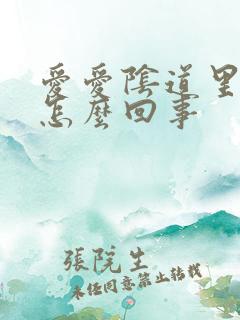 愛愛陰道里
怎麼回事
張院生
未任同意禁止转载